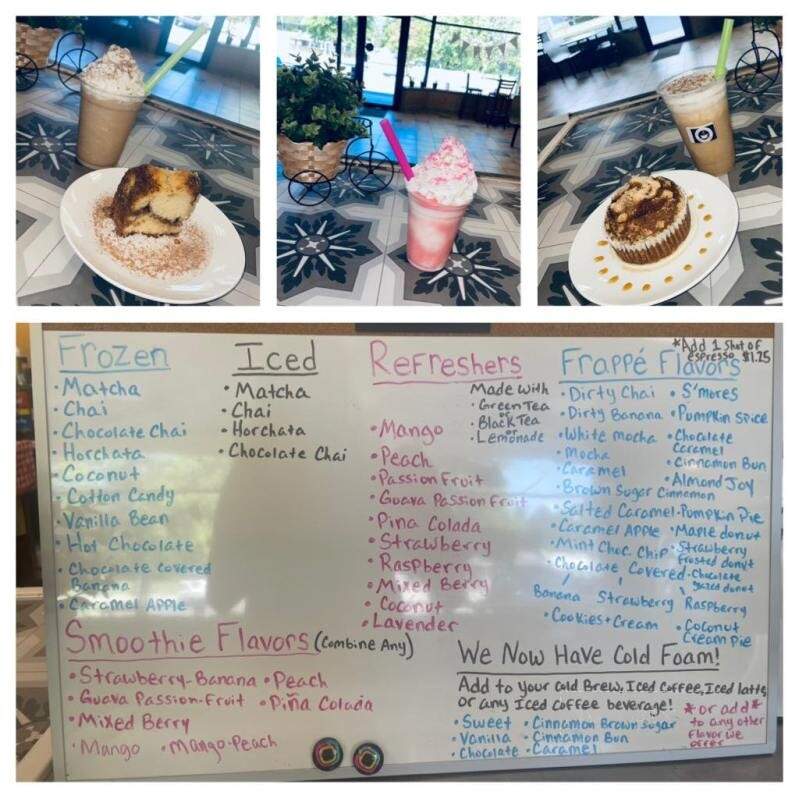 Frozen
• Matcha
• Chai
• Chocolate Chai
• Horchata
• Coconut
• Cotton Candy
• Vanilla Bean
• Hot Chocolate
• Chocolate Covered
Banana
• Caramel Apple
Iced
• Matcha
• Chai
• Horchata
• Chocolate Chai
Refreshers
Made with
• Green Tea
or
• Black Tea
or
• Lemonade
• Mango
• Peach
• Passion Fruit
• Guava Passion Fruit
• Pina Colada
• Strawberry
• Raspberry
• Mixed Berry
• Coconut
• Lavender
*Add 1 shot of
espresso $1.25
Frappé Flavors
• Dirty Chai
• Dirty Banana
• White mocha
• Mocha
• Caramel
• Brown Sugar Cinnamon
• Salted Caramel
• Caramel Apple
• Mint Choc. Chip
• Chocolate Covered
Banana Strawberry Raspberry
• Cookies + Cream
• S'mores
• Pumpkin Spice
• Chocolate
Caramel
• Cinnamon Bun
• Almond Joy
• Pumpkin Pie
• Maple donut
• Strawberry
frosted donut
• Chocolate
glazed donut
• Coconut
Cream Pie
Smoothie Flavors (Combine Any)
• Strawberry-Banana • Peach
• Guava Passion-Fruit • Piña Colada
• Mixed Berry
• Mango • Mango-Peach
We Now Have Cold Foam!
Add to your Cold Brew, Iced Coffee, Iced latte,
or any Iced coffee beverage!
• Sweet • Cinnamon Brown Sugar
• Vanilla • Cinnamon Bun
• Chocolate • Caramel
*or add*
to any other
flavor we
offer